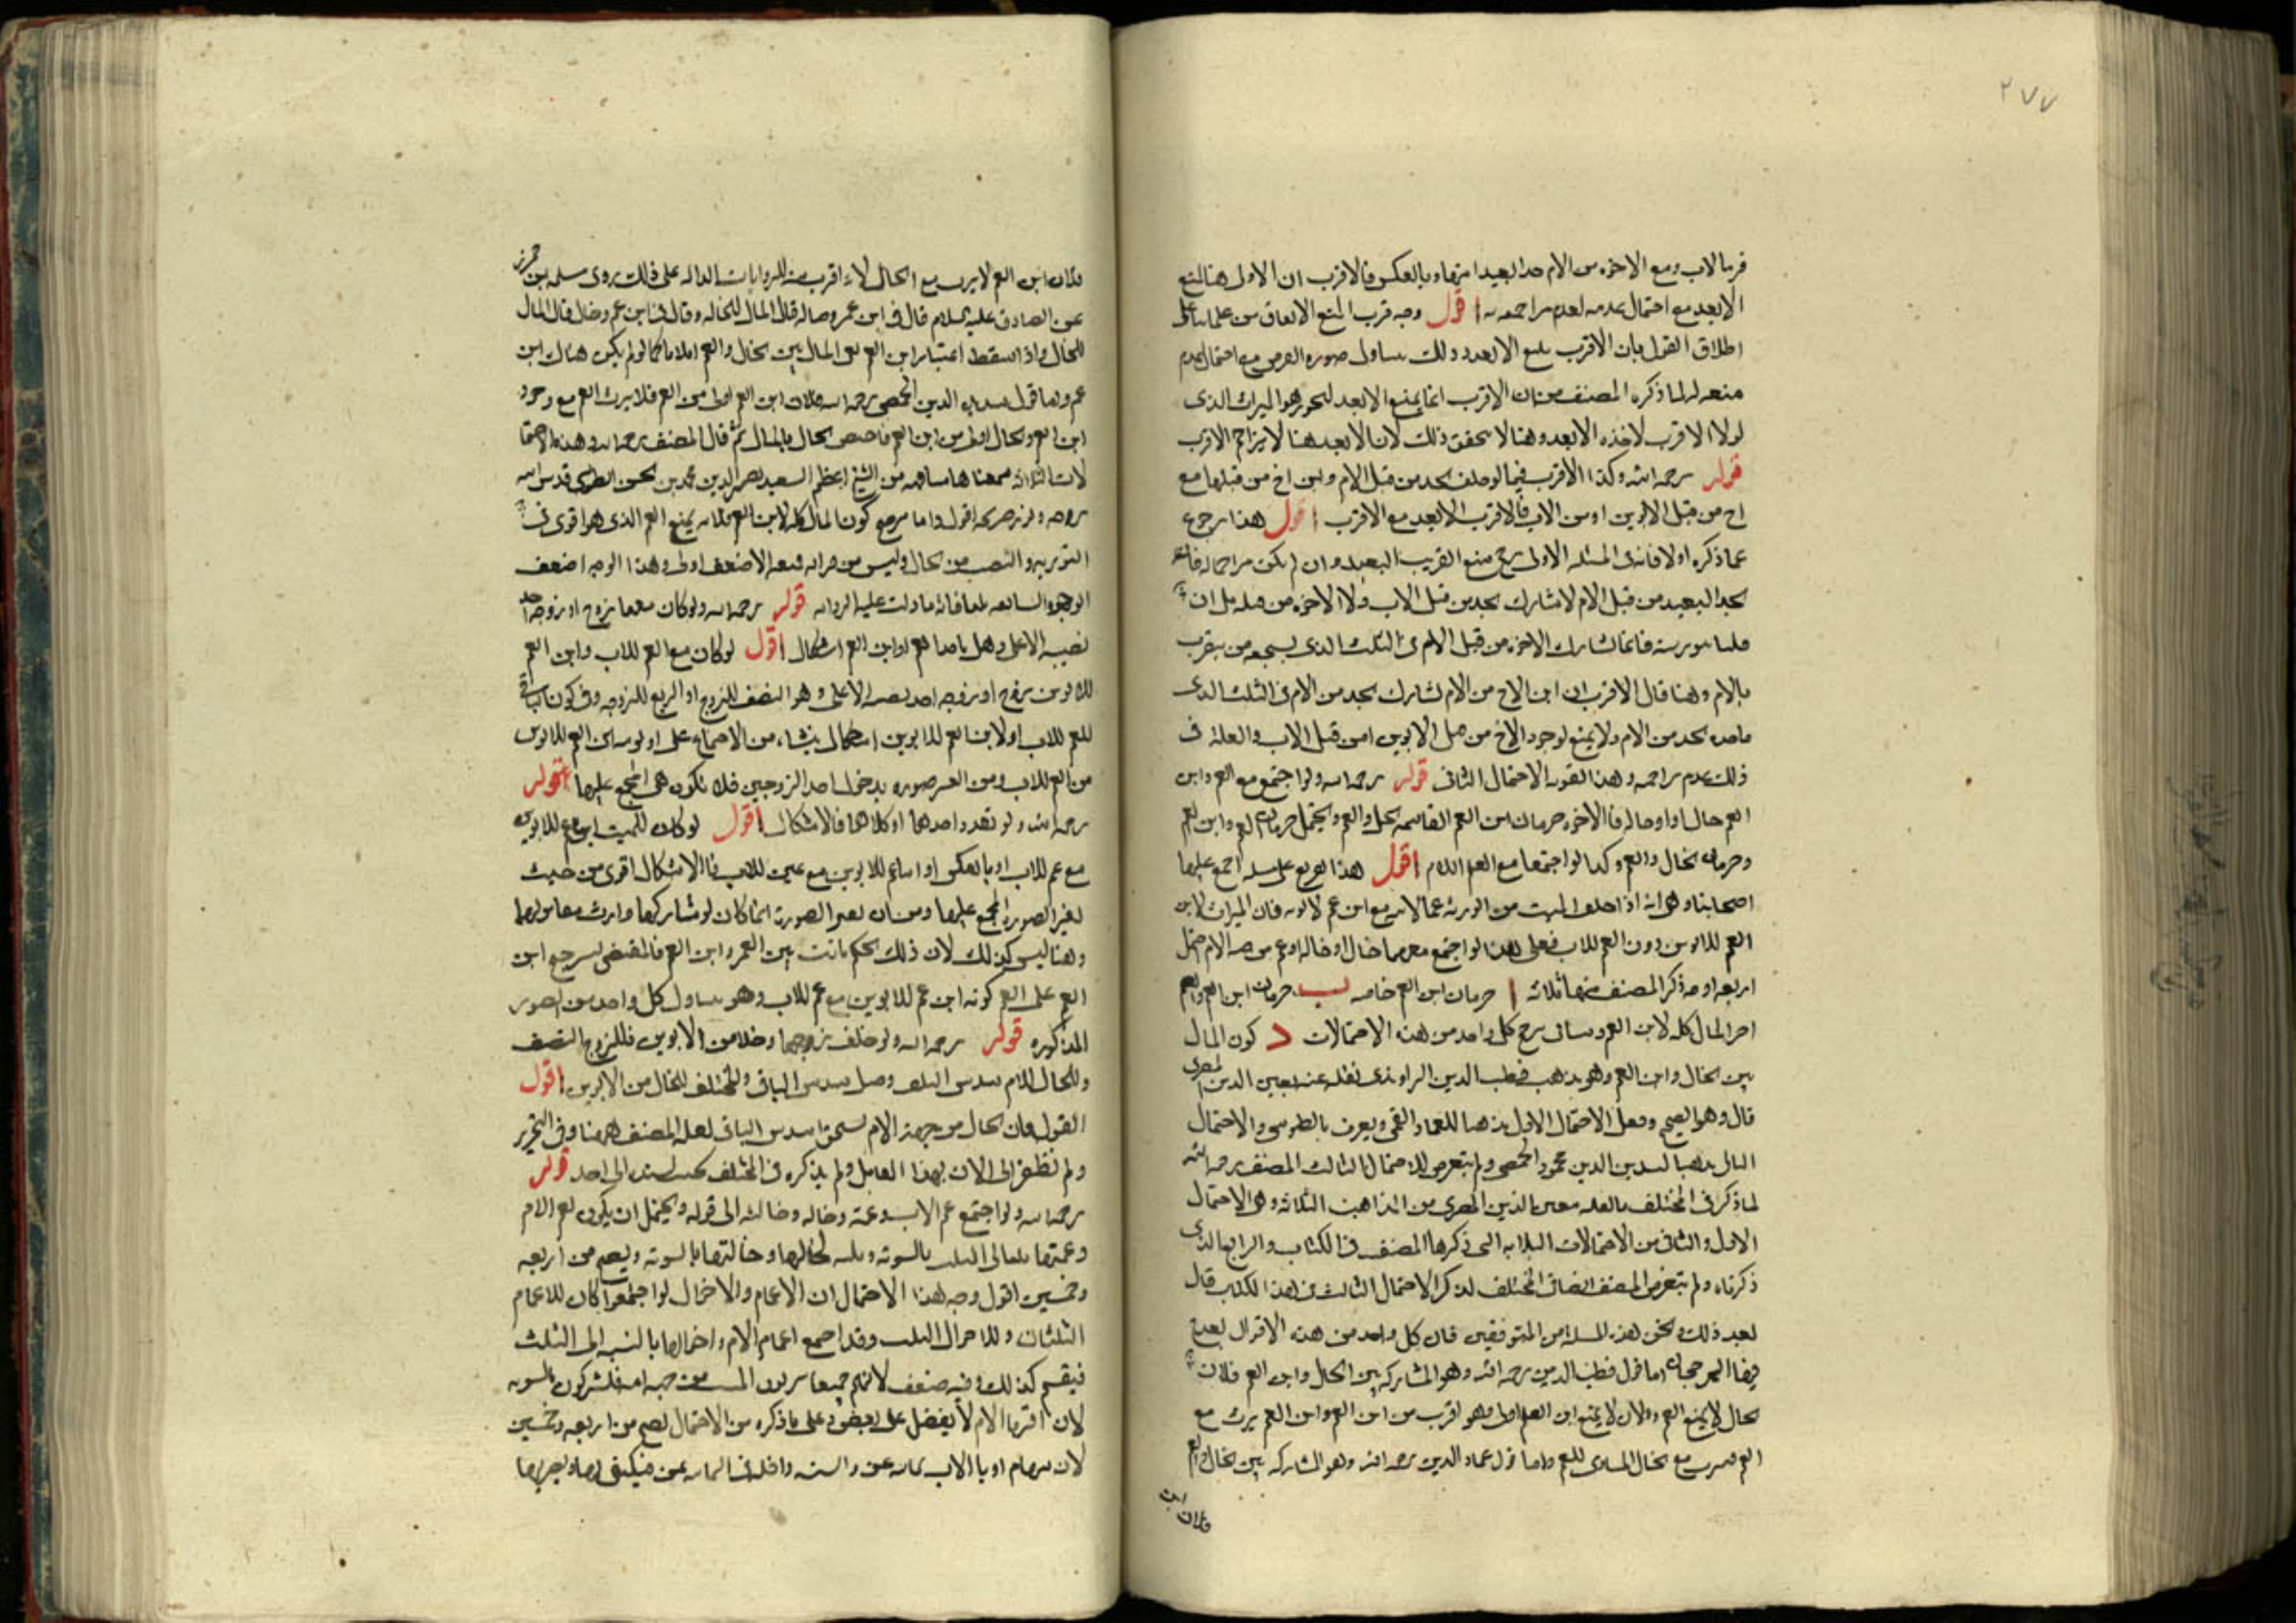 ٢٧٧
الابعد مع احتمال عدمه لعدم مزاحمته اقول وجه قرب المنع الاتفاق من علمائنا على
اطلاق القول بان الاقرب يمنع الابعد وذلك يتناول صوره الفرض مع احتمال عدم
منعه له لما ذكره المصنف من ان الاقرب انما يمنع الابعد ليحوز هو الميراث الذى
لولا الاقرب لاخذه الابعد وهنا لا يتحقق ذلك لان الابعد هنا لا يزاحم الاقرب
قوله رحمه الله وكذا الاقرب فيما لو خلف الجد من قبل الام وابن اخ من قبلها مع
اخ من قبل الابوين او من الاب فالاقرب الابعد مع الاقرب اقول هذا رجوع
عما ذكره اولا فانه فى المسئله الاولى رجح منع القريب البعيد وان لم يكن مزاحما له فان
الجد البعيد من قبل الام لا يشارك الجد من قبل الاب ولا الاخوه من قبله بل ان
قلنا بتوريثه فانما يشارك الاخوه من قبل الام فى الثلث الذى يستحقه من يتقرب
بالام وهنا قال الاقرب ان ابن الاخ من الام يشارك الجد من الام فى الثلث الذى
ياخذه الجد من الام ولا يمنع لوجود الاخ من قبل الابوين او من قبل الاب والعلة فى
ذلك عدم مزاحمه وهذا لقوه الاحتمال الثانى قوله رحمه الله ولو اجتمع مع العم وابن
العم خال او خاله فالاجود حرمان ابن العم ومقاسمه الخال والعم ويحتمل حرمان العم وابن العم
وحرمان الخال والعم وكذا لو اجتمعا مع العم للام اقول هذا تفريع على مسله اجمع عليها
اصحابنا وهى انه اذا خلف الميت من الورثه عما لابيه مع ابن عم لابويه فان الميراث لابن
العم للابوين دون العم للاب فعلى هذا لو اجتمع معهما خال او خاله او عم من جهه الام احتمل
اربعه اوجه ذكر المصنف منها ثلاثه ا حرمان ابن العم خاصه ب حرمان ابن العم والعم
المال كله لابن العم وسياتى ترجيح كل واحد من هذه الاحتمالات د كون المال
بين الخال وابن العم وهو مذهب قطب الدين الراوندى نقله عنه معين الدين المصرى
قال وهو الصحيح وجعل الاحتمال الاول مذهبا للعماد القمى ويعرف بالطوسى والاحتمال
الثانى مذهبا لسديد الدين محمود الحمصى ولم يتعرض للاحتمال الثالث المصنف رحمه الله
لما ذكر فى المختلف ما نقله معين الدين المصرى من المذاهب الثلاثه وهى الاحتمال
الاول والثانى من الاحتمالات الثلاثه التى ذكرها المصنف فى الكتاب والرابع الذى
ذكرناه ولم يتعرض المصنف ايضا فى المختلف لذكر الاحتمال الثالث فى هذا الكتاب قال
بعد ذلك ونحن لهذه المسله من المتوقفين فان كل واحد من هذه الاقوال
اما قول قطب الدين رحمه الله وهو المشاركه بين الخال وابن العم فلان
الخال لا يمنع العم فلان لا يمنع ابن العم اولى وهو اقرب من ابن العم وابن العم يرث مع
العم مع الخال المساوى للعم واما قول عماد الدين رحمه الله وهو المشاركه بين الخال والعم
فلان ابن
فلان ابن العم لا يرث مع الخال لانه اقرب منه للروايات الداله على ذلك روى سلمه بن محرز
عن الصادق عليه السلام قال فى ابن عم وخاله قال المال للخاله وقال فى ابن عم وخال قال المال
للخال واذا سقط اعتبار ابن العم بقى المال بين الخال والعم كما لو لم يكن هناك ابن
عم واما قول سديد الدين الحمصى رحمه الله فلان ابن العم اولى من العم فلا يرث العم مع وجود
ابن العم والخال اولى من ابن العم فاختص الخال بالمال ثم قال المصنف رحمه الله وهذه الاحتما
لات الثلاثه سمعناها مشافهه من الشيخ الاعظم السعيد نصير الدين محمد بن الحسن الطوسى قدس الله
روحه ونور ضريحه اقول واما ترجيح كون المال كله لابن العم فلانه يمنع العم الذى هو اقوى فى
التوريث والنصيب من الخال وليس من مراتبه فمنعه الاضعف اولى وهذا الوجه اضعف
الوجوه السابقه لمنافاته ما دلت عليه الروايه قوله رحمه الله ولو كان معهما زوج او زوجه اخذ
نصيبه الاعلى وهل ياخذ العم او ابن العم اشكال اقول لو كان مع العم للاب وابن العم
للابوين زوج او زوجه اخذ نصيبه الاعلى وهو النصف للزوج او الربع للزوجه وفى كون الباقى
للعم للاب او لابن العم للابوين اشكال ينشاء من الاجماع على اولويه ابن العم للابوين
من العم للاب ومن تغير صوره بدخول احد الزوجين فلا تكون هى المجمع عليها قوله
رحمه الله ولو تعدد احدهما او كلاهما فالاشكال اقول لو كان للميت ابن عم للابوين
مع عم للاب او بالعكس او ابنا عم للابوين مع عمين للاب فالاشكال اقوى من حيث
تغير الصوره المجمع عليها ومن ان تغير الصورة انما كان لو شاركهما وارث
وهنا ليس كذلك لان ذلك الحكم ثابت بين العم وابن العم فالمقتضى لترجيح ابن
العم على العم كونه ابن عم للابوين مع عم للاب وهو يتناول كل واحد من الصور
المذكوره قوله رحمه الله ولو خلف زوجها وخالا من الابوين فللزوج النصف
وللخال للام سدس الثلث وقيل سدس الباقى والمختلف للخال من الابوين اقول
القول بان الخال من جهة الام يستحق سدس الباقى نقله المصنف ههنا وفى التحرير
ولم نظفر الى الان بهذا القائل ولم يذكره فى المختلف الى احد قوله
رحمه الله ولو اجتمع عم الاب وعمته وخاله وخالته الى قوله ويحتمل ان يكون لعم الام
وعمتها ثلثا الثلث بالسويه وثلثه لخالها وخالتها بالسويه ويصح من اربعه
وخمسين اقول وجه هذا الاحتمال ان الاعمام والاخوال لو اجتمعوا كان للاعمام
الثلثان وللاخوال الثلث وقد اجتمع اعمام الام واخوالها بالنسبه الى الثلث
فيقسم كذلك وفيه ضعف لانهم جميعا يرثون الميت من جهه امه فلشركون بالسويه
لان اقرباء الام لا يفضل على بعض وعلى ما ذكره من الاحتمال تصح من اربعه وخمسين